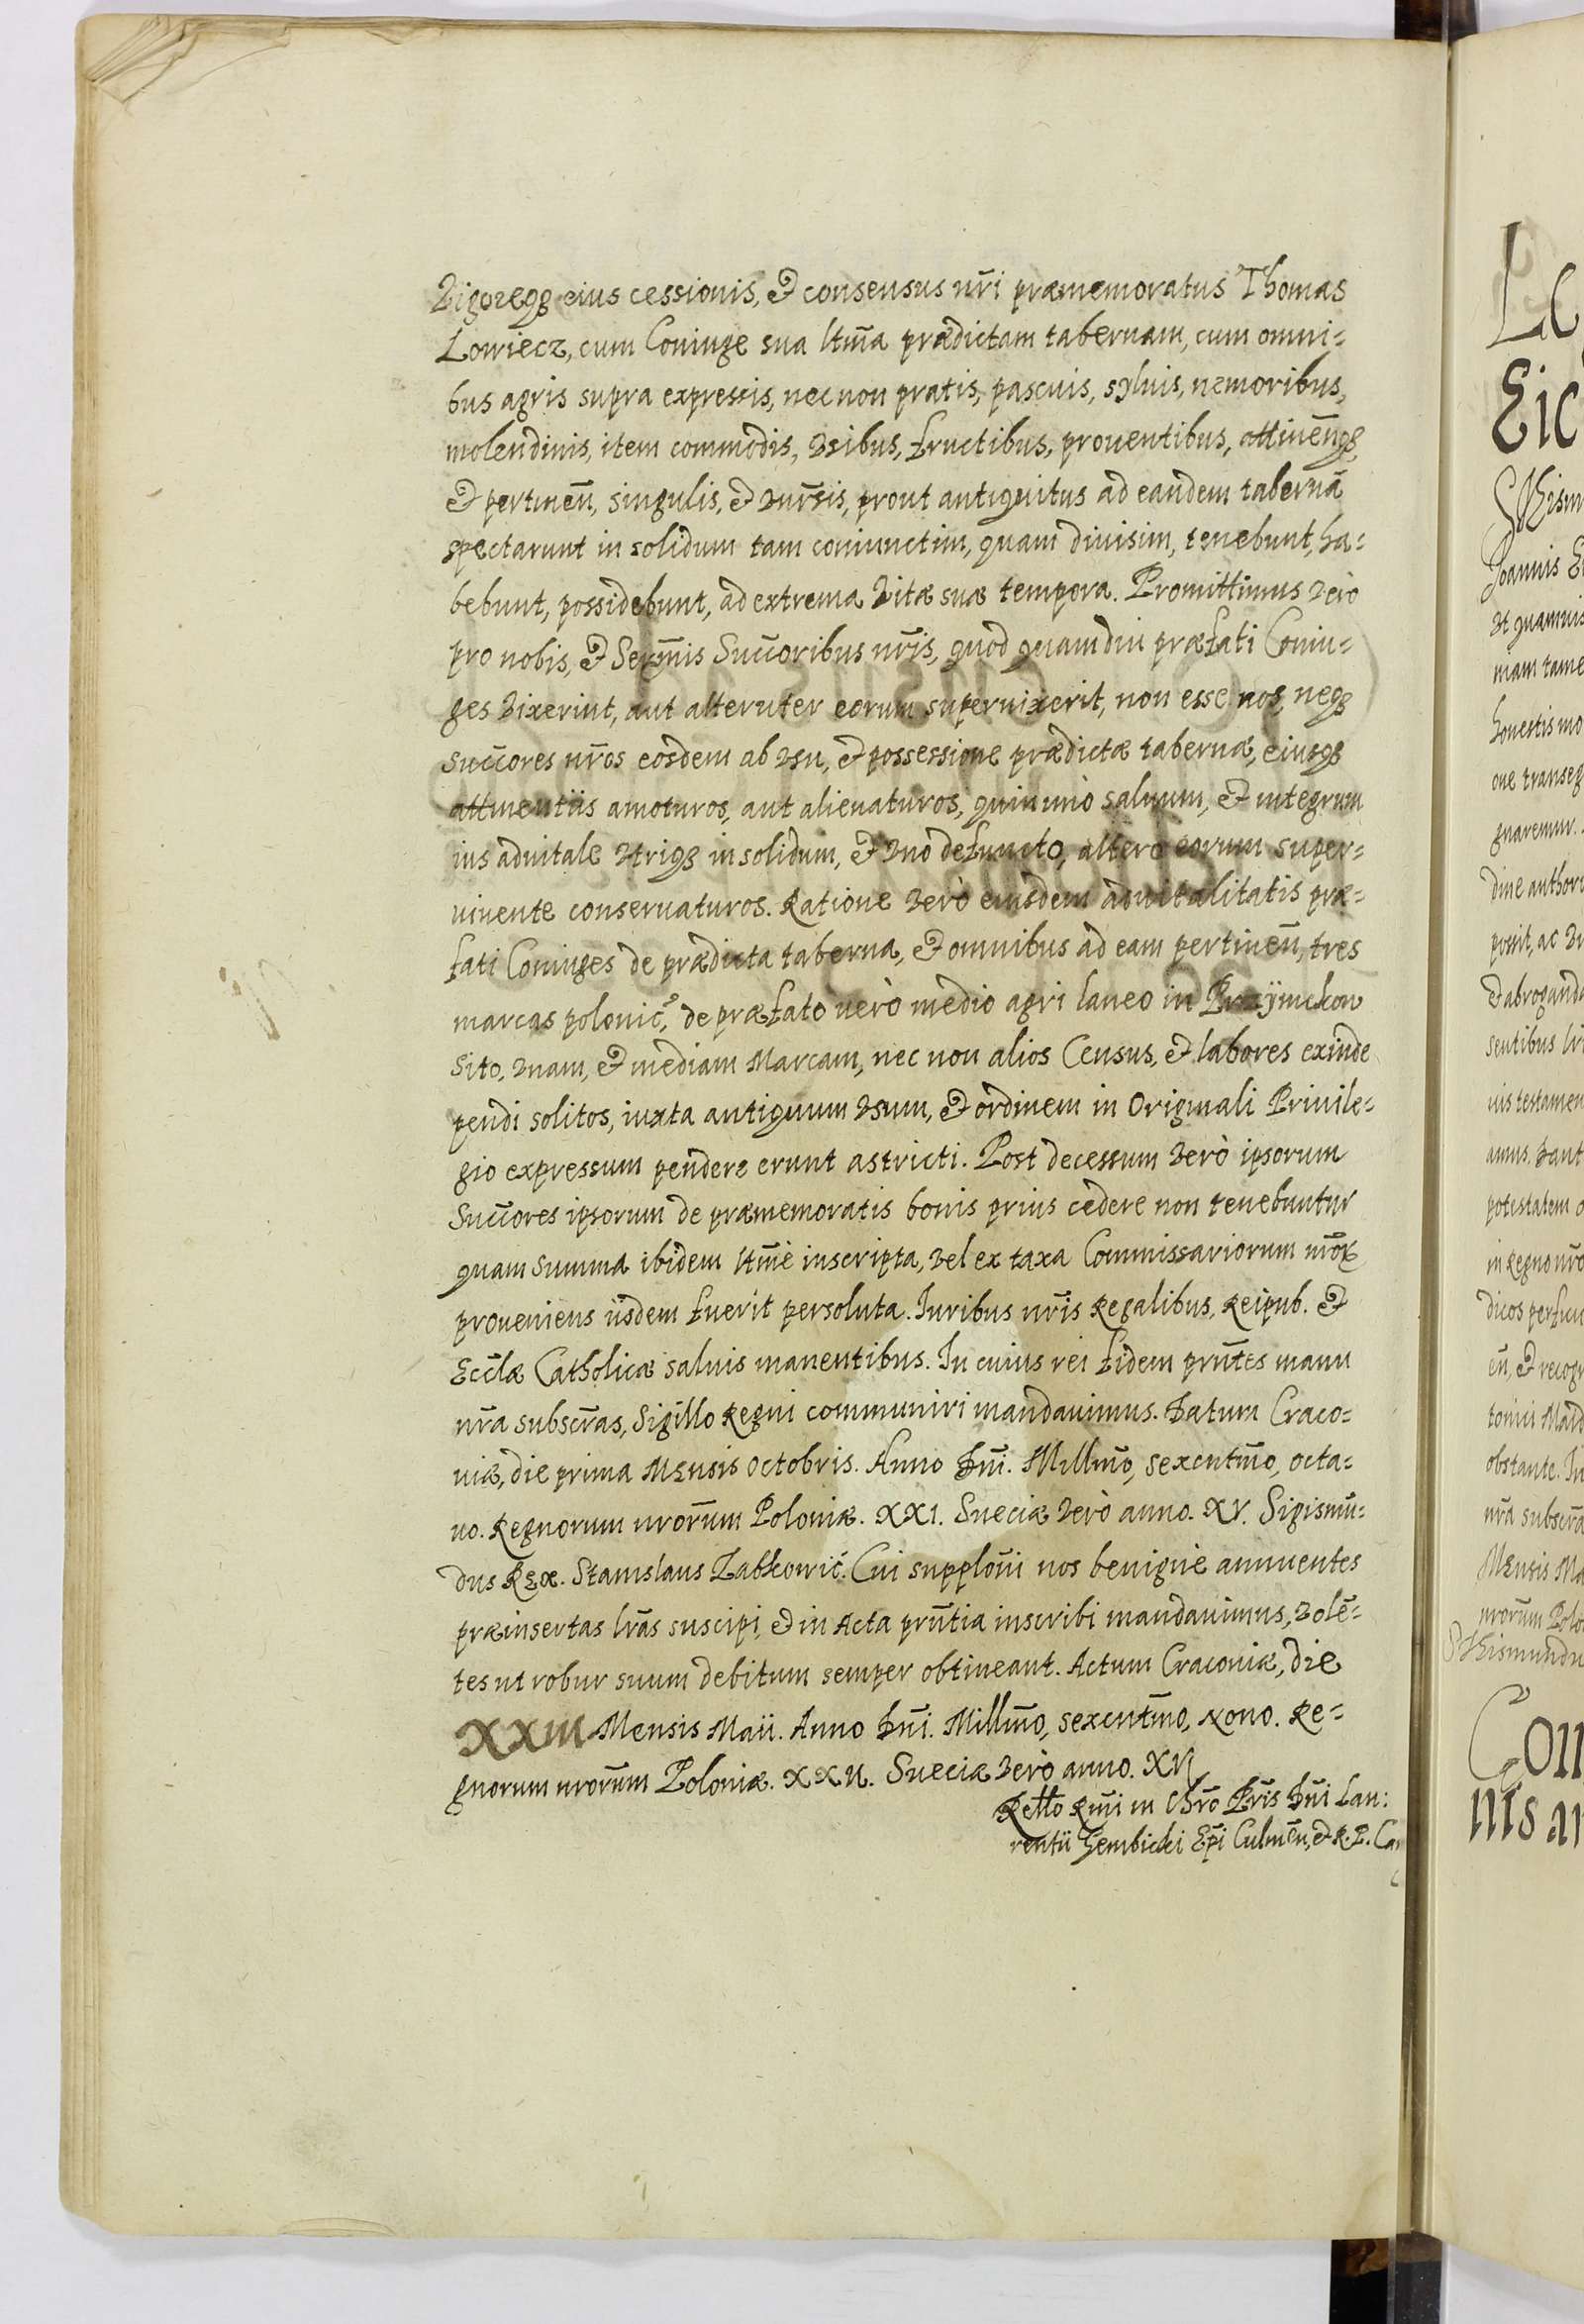 Vigoreqꝫ eius cessionis, et consensus nr̄i præmemoratus Thomas
Lowiecz, cum Coniuge sua ltīma prædictam tabernam, cum omni=
bus agris supra expressis, nec non pratis, pascuis, syluis, nemoribus,
molendinis, item commodis, vsibus, fructibus, prouentibus, attinen̄qꝫ,
et pertinen̄, singulis, et vnr̄sis, prout antiquitus ad eandem tabernā
spectarunt in solidum tam coniunctim, quam diuisim, tenebunt, ha=
bebunt, possidebunt, ad extrema vitæ suæ tempora. Promittimus vero
pro nobis, et Serm̄is Succ̄oribus nr̄is, quod quamdiu præfati Coniu=
ges vixerint, aut alteruter eorum superuixerit, non esse nos, neqꝫ
succ̄ores nr̄os eosdem ab vsu, et possessione prædictæ tabernæ, eiusqꝫ
attinentiis amoturos, aut alienaturos, quinimò saluum, et integrum
ius aduitale vtriqꝫ in solidum, et vno defuncto, altero eorum super=
uiuente conseruaturos. Ratione verò eiusdem aduitalitatis præ=
fati Coniuges de prædicta taberna, et omnibus ad eam pertinen̄, tres
marcas polonic̄, de præfato verò medio agri laneo in Przÿmekow
sito, vnam, et mediam Marcam, nec non alios Census, et labores exinde
pendi solitos, iuxta antiquum vsum, et ordinem in Originali Priuile=
gio expressum pendere erunt astricti. Post decessum verò ipsorum
Succ̄ores ipsorum de præmemoratis bonis prius cedere non tenebuntur
quam summa ibidem ltīmè inscripta, vel ex taxa Commissariorum nr̄oꝝ
proueniens iisdem fuerit persoluta. Iuribus nr̄is Regalibus, Reipub. et
Eccl̄æ Catholicæ saluis manentibus. In cuius rei fidem prn̄tes manu
nr̄a subscr̄as, Sigillo Regni communiri mandauimus. Datum Craco=
uiæ, die prima Mensis Octobris. Anno Dn̄i. Millm̄o, sexcntm̄o, octa=
uo. Regnorum nrorūm Poloniæ. XXI. Sueciæ verò anno. XV. Sigismū=
dus Rex. Stanislaus Zabkowic̄. Cui supplōni nos benignè annuentes
præinsertas lr̄as suscipi, et in Acta prn̄tia inscribi mandauimus, volē=
tes ut robur suum debitum semper obtineant. Actum Cracouiæ, die
XXIII Mensis Maii. Anno Dn̄i. Millm̄o, sexcntm̄o, Nono. Re=
gnorum nrorūm Poloniæ. XXII. Sueciæ verò anno. XVI
Rel̄to Rm̄i in Chr̄o Pr̄is Dn̄i Lau:
rentii Gembicki Ep̄i Culmēn, et R. P. Ca
Eic
Joannis
honestis mo
potestatem
in Regno nr̄o
et recogn
obstante. In
nr̄a subscr̄a
Mensis Ma
nrorūm Polo
Con
nis an